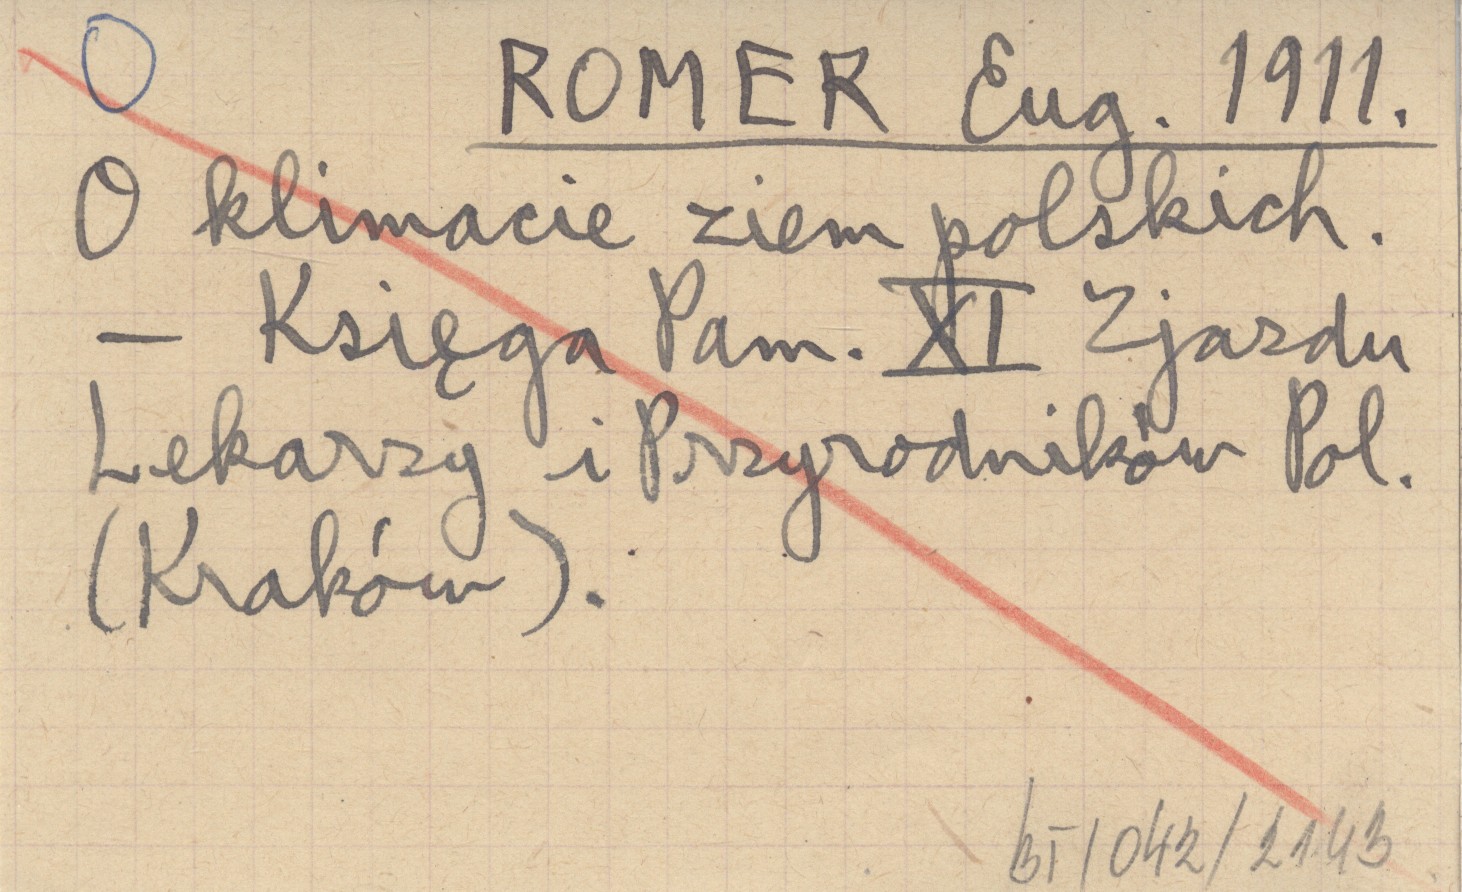 O ROMER Eug. 1911.
O klimacie ziem polskich.
— Księga Pam. XI Zjazdu
Lekarzy i Przyrodników Pol.
(Kraków).
BT/042/2143